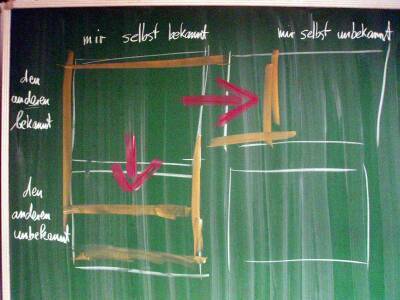 mir selbst bekannt
mir selbst unbekannt
den
anderen
bekannt
den
anderen
unbekannt